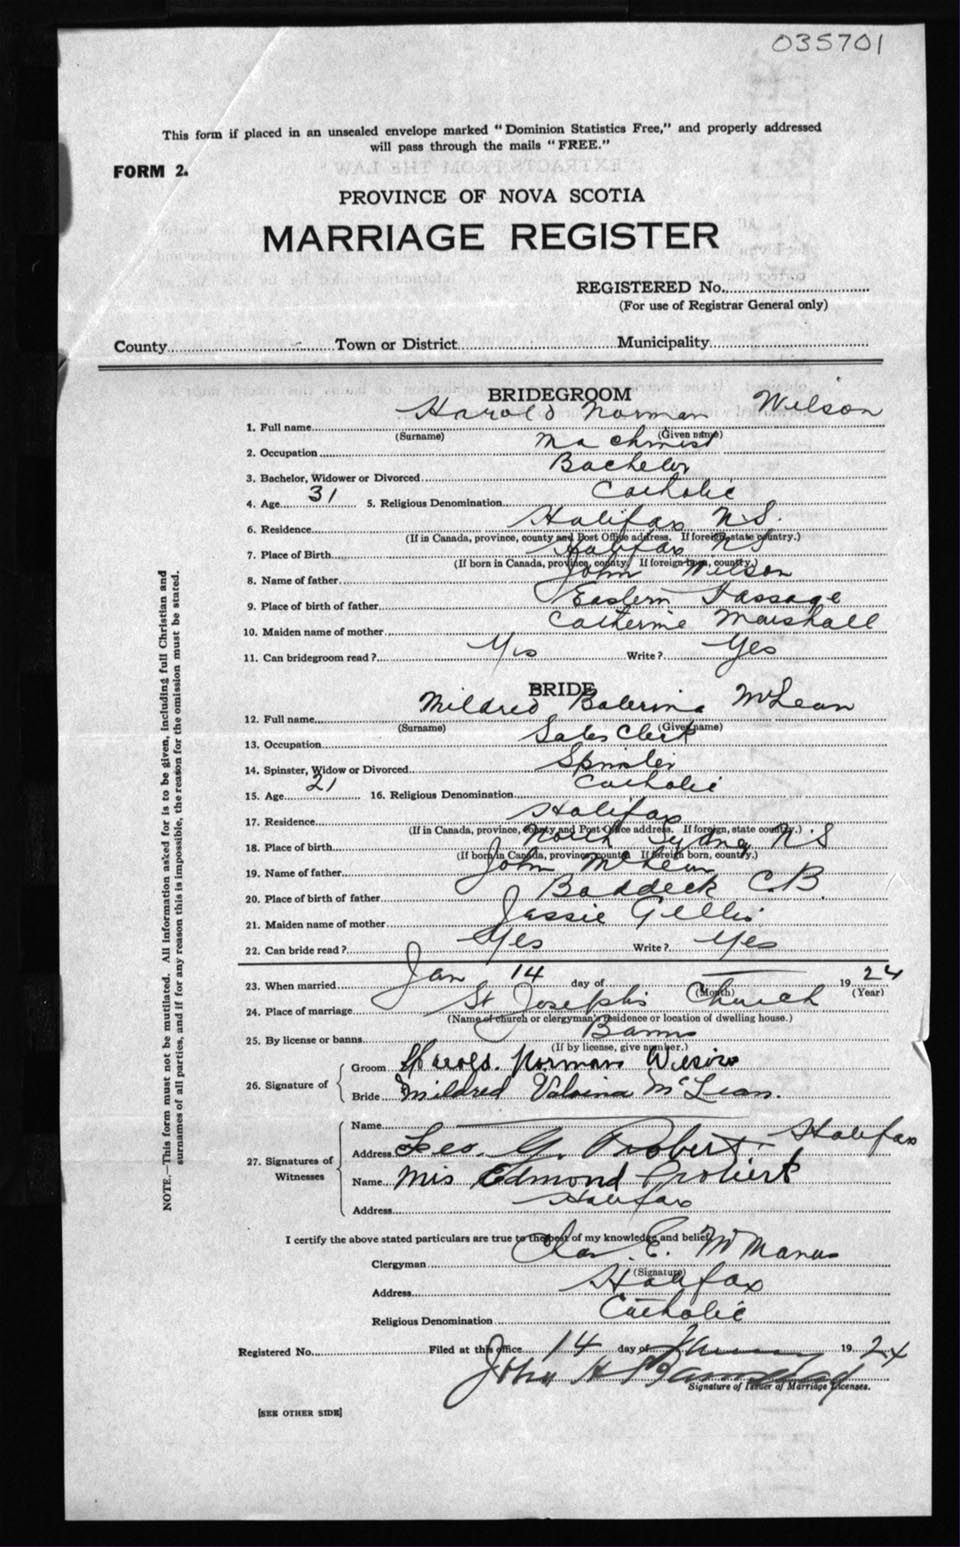 035701
This form if placed in an unsealed envelope marked "Dominion Statistics Free," and properly addressed
will pass through the mails "FREE."
FORM 2.
PROVINCE OF NOVA SCOTIA
MARRIAGE REGISTER
REGISTERED No.
(For use of Registrar General only)
County Town or District Municipality
BRIDEGROOM
1. Full name Harold Norman Wilson
(Surname) (Given name)
2. Occupation Machinist
3. Bachelor, Widower or Divorced Bachelor
4. Age 31 5. Religious Denomination Catholic
6. Residence Halifax N.S.
(If in Canada, province, county and Post Office address. If foreign, state country.)
7. Place of Birth Halifax NS
(If born in Canada, province, county. If foreign born, country.)
8. Name of father John Wilson
9. Place of birth of father Eastern Passage
10. Maiden name of mother Catherine Marshall
11. Can bridegroom read? Yes Write? Yes
BRIDE
12. Full name Mildred Balerina McLean
(Surname) (Given name)
13. Occupation Sales Clerk
14. Spinster, Widow or Divorced Spinster
15. Age 21 16. Religious Denomination Catholic
17. Residence Halifax
(If in Canada, province, county and Post Office address. If foreign, state country.)
18. Place of birth North Sydney N S
(If born in Canada, province, county. If foreign born, country.)
19. Name of father John McLean
20. Place of birth of father Baddeck C.B.
21. Maiden name of mother Jessie Gillis
22. Can bride read? Yes Write? Yes
23. When married Jan 14 day of 1924
(Month) (Year)
24. Place of marriage St Joseph's Church
(Name of church or clergyman's residence or location of dwelling house.)
25. By license or banns Banns
(If by license, give number.)
26. Signature of
Groom Harold Norman Wilson
Bride Mildred Valerina McLean.
27. Signatures of Witnesses
Name
Address Leo. G. Probert Halifax
Name Mrs Edmond Probert
Address Halifax
I certify the above stated particulars are true to the best of my knowledge and belief.
Clergyman Chas. E. McManus
(Signature)
Address Halifax
Religious Denomination Catholic
Registered No. Filed at this office 14 day of January 1924
John H
Signature of Issuer of Marriage Licenses.
[SEE OTHER SIDE]
NOTE.—This form must not be mutilated. All information asked for is to be given, including full Christian and
surnames of all parties, and if for any reason this is impossible, the reason for the omission must be stated.